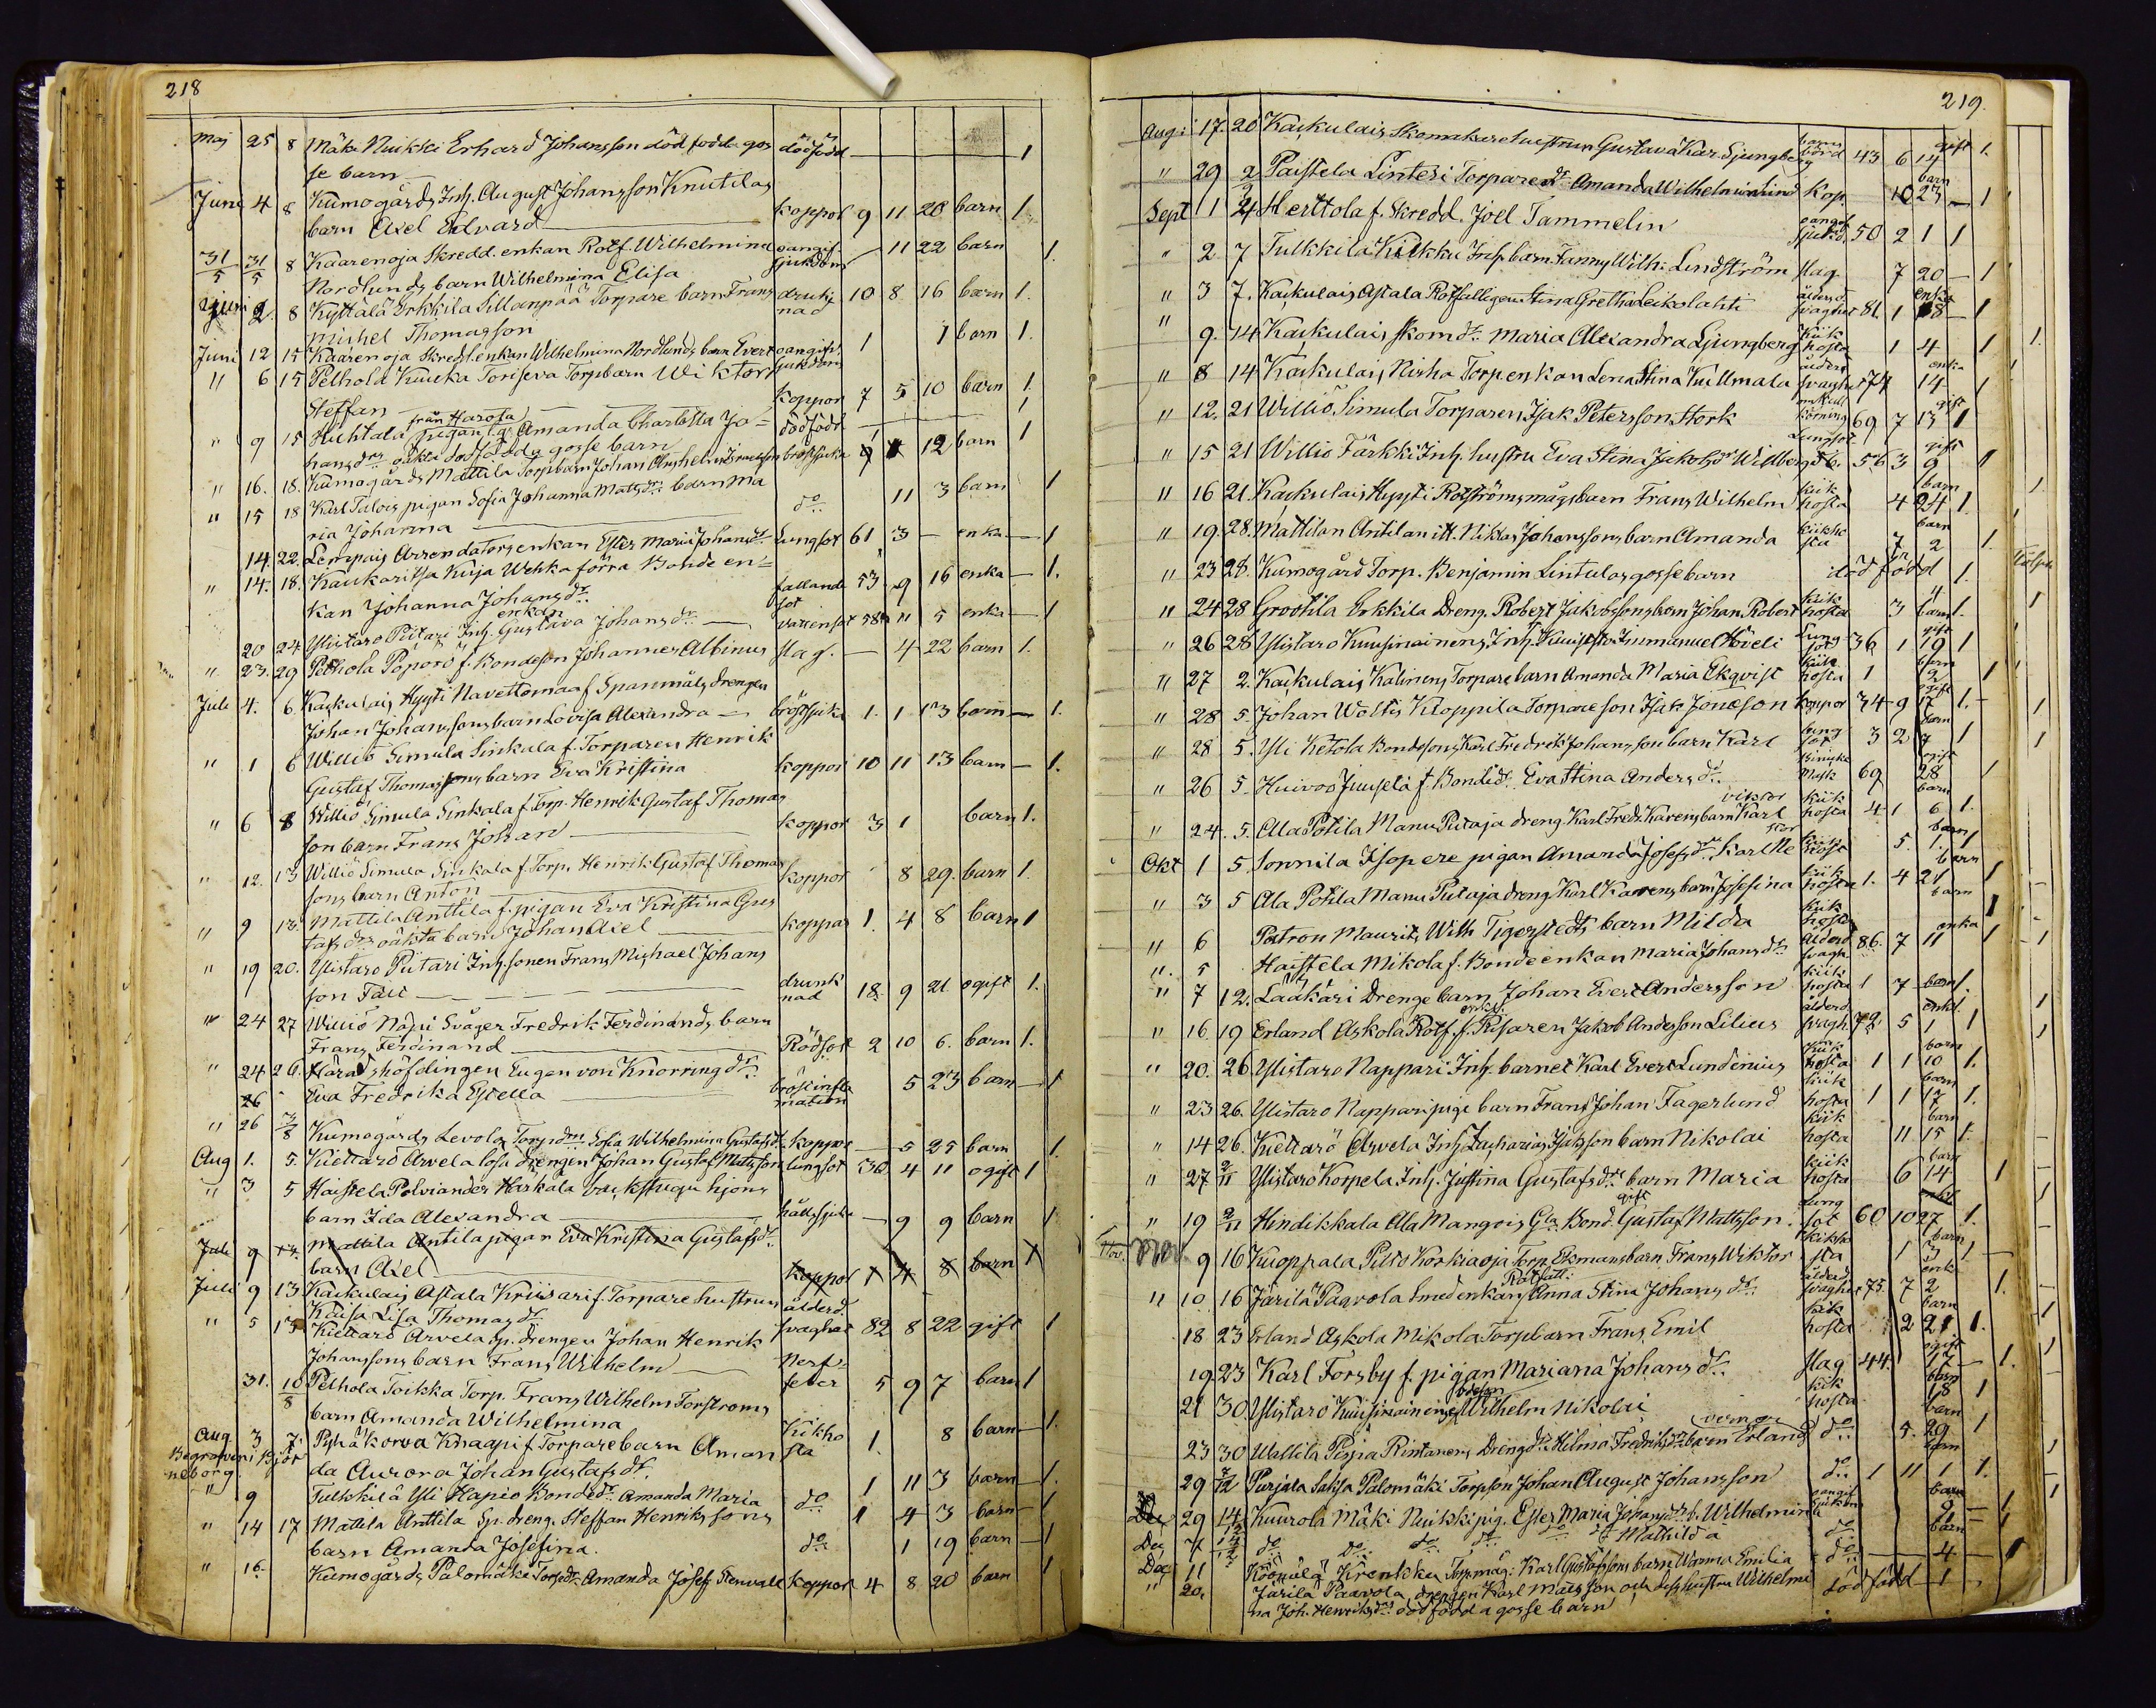 218
Maj 25 8 Mäk. Nuikki Erhard Johansson död födda gos dödfödd 1
se barn
Juni 4 8 Kumogårds Inh. August Johansson Knutilas koppor 9 11 28 barn 1
barn Axel Edvard
31/5 31/5 8 Kaarenoja Skredd. enkan Rotf. Wilhelmina oangif. sjukdom 11 22 barn 1.
Nordlunds barn Wilhelmina Elisa
Juni 2. 8 Kyttälä Erkkilä Sillanpää Torpare barn Frans drunk nad 10 8 16 barn 1.
Mishel Thomasson
Juni 12 15 Kaarenoja Skredd. enkan Wilhelmina Nordlunds barn Evert oangifv. sjukdom 1 1 barn 1.
" 6 15 Pelhola Kuuka Toriseva Torp. barn Wiktor koppor 7 5 10 barn 1.
Steffan
" 9 15 Huhtala från Harola pigan Amanda Charlotta Jo= dödfödd 1
hansdrs oäkta dödfödda gosse barn
" 16. 18. Kumogårds Mattila Torp. barn Johan Israelsson bröstsjuka 9 12 barn 1
" 15 18 Karl Talois pigan Sofia Johanna Mattsdrs barn Ma do 11 3 barn 1
ria Johanna
14. 22. Lempais Arrendators enkan Ester Maria Johansdr Lungsot 61 3 — enka — 1
" 14. 18. Kaukaritsa Kuja Wehka förra Bonde en= fallande sot 53 9 16 enka — 1.
kan Johanna Johansdr
20 24 Ylistaro Piitari Inh. enkan Gustava Johansdr vattensot 58 11 5 enka — 1
" 23. 29 Pelhola Paporo f. Bondeson Johannes Albinus slag. — 4 22 barn 1.
Juli 4. 6. Kaskulais Hyyti Navettomaa f Spanmåls drengen
Johan Johanssons barn Lovisa Alexandra bröstsjuka 1. 1 13 barn — 1.
" 1 6 Williö Simula Sinkala f. Torparen Henrik
Gustaf Thomassons barn Eva Kristina koppor 10 11 13 barn — 1.
" 6 8 Williö Simula Sinkala f. Torp. Henrik Gustaf Thomas koppor 3 1 barn 1.
son barn Frans Johan
" 12. 13 Williö Simula Sinkala f. Torp. Henrik Gustaf Thomas koppor 8 29. barn 1.
sons barn Anton
" 9 13. Mattila Anttila f. pigan Eva Kristina Gus koppor 1. 4 8 barn 1
tafs drs oäkta barn Johan Axel
" 19 20. Ylistaro Piitari Inh. sonen Frans Michael Johans drunk nad 18 9 21 ogift 1.
son Fält
" 24 27 Williö Näpi Svåger Fredrik Ferdinands barn
Frans Ferdinand Rödsot 2 10 6. barn 1.
" 24 26. Häradshöfdingen Eugen von Knorring dr bröstinfla mation 5 23 barn — 1
26 Eva Fredrika Estella
" 26 3/8 Kumogårds Levola Torp. Sofia Wilhelmina Gustafsdr koppor — 5 25 barn 1.
Aug 1. 5. Kiettarö Arvela lösa drengen Johan Gustaf Mattsson lungsot 30 4 11 ogift 1
" 3 5 Haistela Polviander Harkala backstugu hjons
barn Ida Alexandra halssjuka — 9 9 barn 1
Juli 9 13. Mattila Antila pigan Eva Kristina Gustafsdr
barn Axel koppor 1 4 8 barn 1
Juli 9 13 Kaukulais Astala Kriivari f. Torpare hustrun ålderd. svaghet 82 8 22 gift 1
Kaisa Lisa Thomasdr
" 5 15 Kiettarö Arvela Sp. drengen Johan Henrik
Johanssons barn Frans Wilhelm Nerf= feber 5 9 7 barn 1
31. 10/8 Pelhola Toikka Torp. Frans Wilhelm Torstroms
barn Amanda Wilhelmina Kikho sta 1. 8 barn — 1.
Aug 3 7. Pyhäkorva Knaapi f. Torpare barn Aman
Begrafven i Björneborg da Aurora Johan Gustafsdr 1 11 3 barn — 1.
" 9 Tulkkila Yli Hapio Bondedr Amanda Maria do 1 4 3 barn — 1
" 14 17 Mattila Anttila Sp. dreng. Steffan Henrikssons
barn Amanda Josefina. do 1 19 barn — 1
" 16. Kumogårds Palomäki Torp.dr Amanda Josef. Stenvall Koppor 4 8 20 barn 1
219.
Aug: 17. 20 Kaskulais Skomakare hustrun Gustava Kar. Ljungberg barns börd 43 6 14 gift 1.
" 29 2/9 Paistela Linteri Torparedr Amanda Wilhelmina Lind Kop. 10 23 barn — 1
Sept 1 4 Herttola f. Skredd. Joel Tammelin oangif. sjukd. 50 2 1 1
" 2 7 Tulkkila Kikku Inh. barn Fanny Wilh. Lindström slag 7 20 — 1
" 3 7. Kaskulais Astala Rotfattigen Stina Gretha Leikolahti ålderd. svaghet 81. 1 8 enka — 1
" 9. 14 Kaskulais Skom.dr Maria Alexandra Ljungberg Kik hosta 1 4 1
" 8 14 Kaskulais Nisha Torp enkan Lena Stina Kullmala ålderd svaghet 74 14 enka 1
" 12. 21 Williö Simula Torparen Isak Petersson Stork 69 7 13 gift 1
" 15 21 Williö Färkki Inh. hustru Eva Stina Jakobsdr Willberg Lungsot 56 3 9 gift 1
" 16 21. Kaskulais Hyyti Rotströms mågs barn Frans Wilhelm kik hosta 4 24 barn 1.
" 19. 28. Mattilan Antilan itt. Niklas Johanssons barn Amanda kikho sta 7 2 barn 1.
" 23 28. Kumogård Torp. Benjamin Lintulas gosse barn död född 1.
" 24 28 Grootila Erkkilä Dreng. Robert Jakobssons barn Johan Robert kik hosta 3 4 barn 1.
" 26 28 Ylistaro Kuusinainens Inh. Immanuel Höveli Lung sot 36 1 19 gift 1
" 27 2. Kaskulais Kalinens Torpare barn Amanda Maria Ekqvist kik hosta 1 2 barn 1
" 28 5. Johan Woltis Kloppila Torpare son Isak Joneson koppor 34 9 17 ogift 1.
" 28 5. Yli Ketola Bondesons Karl Fredrik Johansson barn Karl lung sot 3 2 7 barn 1
" 26 5. Huivoo Juusela f. Bondedr Eva Stina Andersdr 69 28 gift 1
" 24. 5. Ala Potila Manu Putaja dreng. Karl Fredr. Karens barn Karl Viktor kik hosta 4 1 6 barn 1.
Okt 1 5 Sonnila Isopere pigan Amanda Josefsdr Karl kik hosta 5. 1. barn 1
" 3 5 Ala Potila Manu Putaja dreng Karl Karens barn Josefina kik hosta 1. 4 21 barn 1
" 6 Patron Maurits Wilh Tigerstedts barn Milda kik hosta barn 1
" 5 Haistela Mikola f. Bonde enkan Maria Johansdr Ålderd svagh. 86. 7 11 enka 1
" 7 12. Lääkäri Drenge barn Johan Evert Andersson kik hosta 1 7 barn 1.
" 16. 19 Erland Askola Rotf. f. Risaren Jakob Andersson Lilius ålderd svagh. 72 5 1 enkl. 1
" 20. 26 Ylistaro Nappari Inh. barnet Karl Evert Lundenius kik hosta 1 1 10 barn 1.
" 23 26. Ylistaro Nappari pige barn Frans Johan Fagerlund kik hosta 1 1 17 barn 1.
" 14 26. Kiettarö Arvela Inh. Zacharias Isaksson barn Nikolai kik hosta 11 15 barn 1.
" 27 2/11 Ylistaro Korpela Inh. Justina Gustafsdrs barn Maria kik hosta 6 14 barn 1
" 19 2/11 Hindikkala Ala Mangois Gla Bond. gift Gustaf Mattsson Lung sot 60 10 27 1.
Nov. Nov 9 16 Kuoppala Pelto Korkiaoja Torp. Ekmans barn Frans Wiktor kikho sta 1 3 barn 1
" 10 16 Järilä Paavola Smed enkan Rotfatt. Anna Stina Johansdr ålderd svaghet 75. 7 2 enk. 1.
18 23 Erland Askola Mikola Torp barn Frans Emil kik hosta 2 21 barn 1.
19 23 Karl Forsby f. pigan Mariana Johansdr slag 44. 17 ogift 1.
21 30. Ylistaro Kuusinainens Wilhelm Nikolai kik hosta 18 barn 1
23 30 Wallila Pispa Rintanens Drengdr Hilma Fredriksdrs barn Erland do 5. 29 barn 1
29 7/12 Purjala Saksa Palomäki Torpson Johan August Johansson do 1 11 1 barn 1.
29 14/12 Kuurola Mäki Nuikki pig. Ester Maria Johansdrs b. Wilhelmina oangif sjukdom 9 barn 1
Dec 7 do do do do do Mathilda do barn 1
Dec 11 Köömilä Kronkku Torp.måg. Karl Gustafssons barn Wanma Emilia do 4 — 1
" 20. Järilä Paavola drengen Karl Mattsson och dess hustru Wilhelmi död född — 1
na Joh. Henriksdrs död födda gosse barn